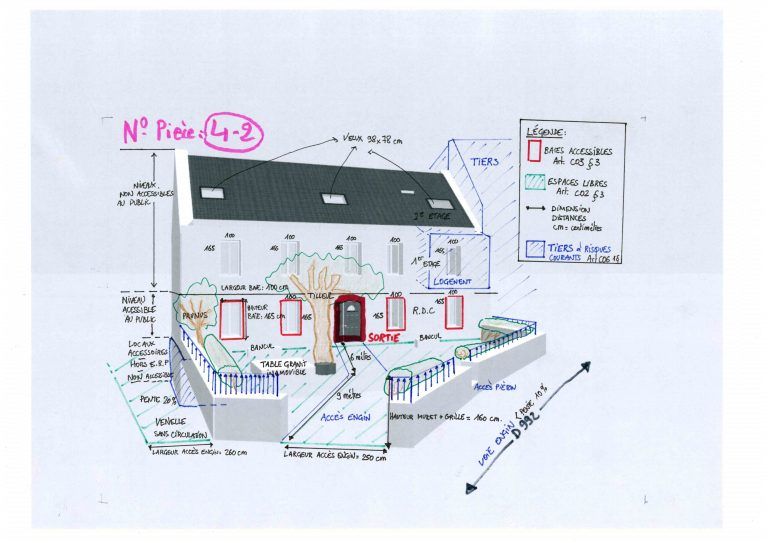 N° Pièce: 4-2
VELUX 98x78 cm
TIERS
2e ETAGE
NIVEAUX
NON ACCESSIBLES
AU PUBLIC
100
100
100
100
100
165
165
165
165
165
1er ETAGE
LOGEMENT
LARGEUR BAIE: 100 cm
TILLEUL
NIVEAU
ACCESSIBLE
AU PUBLIC
PRUNUS
HAUTEUR
BAIE: 165 cm
100
165
100
165
R.D.C
100
165
SORTIE
BANCUL
BANCUL
LOCAUX
ACCESSOIRES
HORS E.R.P
NON ACCESSIBLE
TABLE GRANIT
INAMOVIBLE
6 mètres
9 mètres
ACCÈS PIÉTON
PENTE 20%
ACCÈS ENGIN
HAUTEUR MURET + GRILLE = 160 cm.
VENELLE
SANS CIRCULATION
LARGEUR ACCÈS ENGIN = 260 cm
LARGEUR ACCÈS ENGIN = 250 cm
VOIE ENGIN (PENTE 10%
D 992
LÉGENDE:
BAIES ACCESSIBLES
Art. CO3 § 3
ESPACES LIBRES
Art. CO2 § 3
DIMENSION
DISTANCES
cm = centimètres
TIERS à RISQUES
COURANTS Art CO6 16